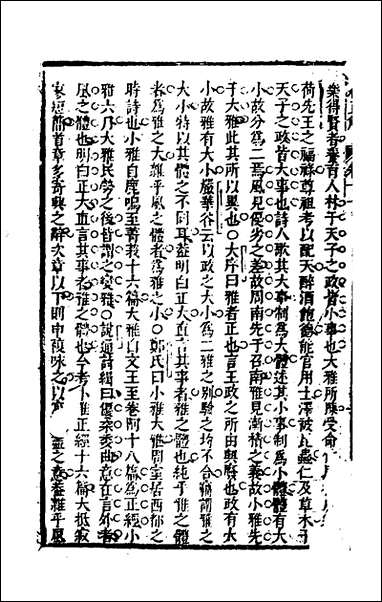 樂得賢者養育人材于天子之政皆小事也大雅所陳受命
荷先王之福祿尊祖考以配天醉酒飽德能官用士澤被昆蟲仁及草木于
天子之政皆大事也詩人歌其大事制為大體述其小事制為小體體有大
小故分為二焉風見優劣之差故周南先于召南雅見漸積之義故小雅先
于大雅此其所以異也○大序曰雅者正也言王政之所由興廢也政有大
小故雅有大小嚴華谷云以政之大小為二雅之別驗之均不合竊謂雅之
大小特以其體之不同耳盖明白正大直言其事者雅之體也純乎雅之體
者為雅之大雜乎風之體者為雅之小○鄭氏曰小雅大雅周室居西都之
時詩也小雅自鹿鳴至菁莪十六篇大雅自文王至卷阿十八篇為正經小
雅六月大雅民勞之後皆謂之變雅○說通詩緝曰優柔委曲意在言外者
風之體也明白正大直言其事者雅之體也今考小雅正經十六篇大抵寂
寥短簡首章多寄興之辭次章以下則申複咏之以 盡之意蓋雜乎風